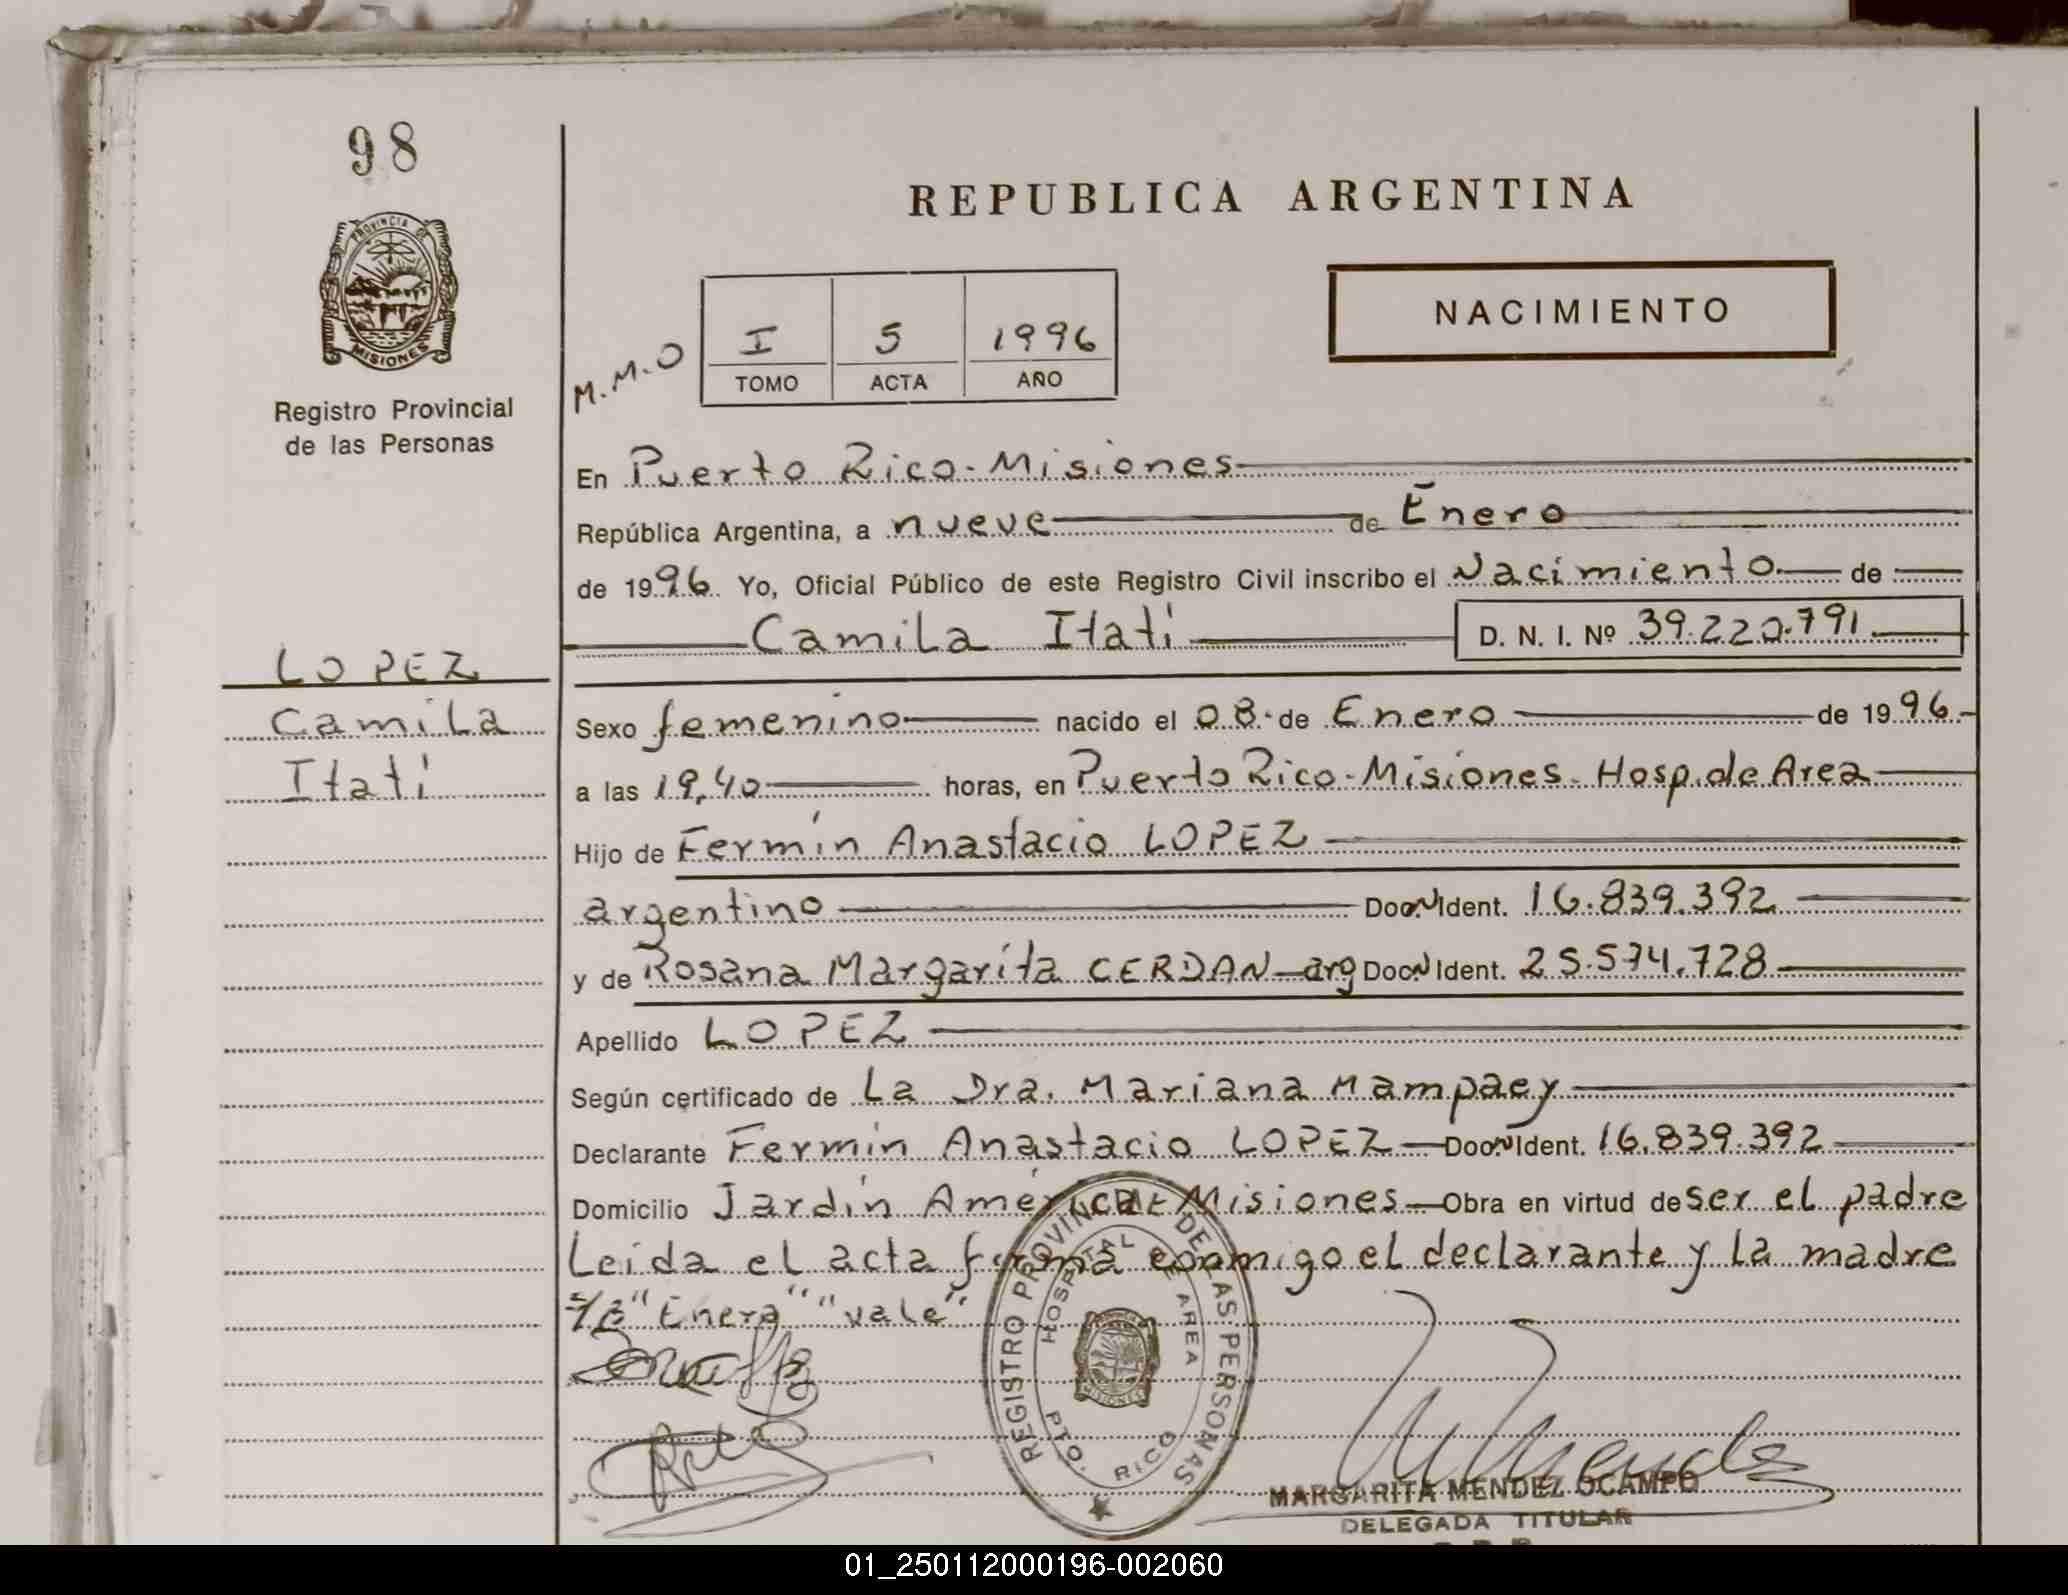 98
REPUBLICA ARGENTINA
PROVINCIA DE
MISIONES
NACIMIENTO
I 5 1996
M.M.O
TOMO ACTA AÑO
Registro Provincial
de las Personas
En Puerto Rico - Misiones
República Argentina, a nueve de Enero
de 1996 Yo, Oficial Público de este Registro Civil inscribo el Nacimiento de
Camila Itatí D. N. I. Nº 39.220.791
LOPEZ
Camila
Itatí
Sexo femenino nacido el 08 de Enero de 1996
a las 19,40 horas, en Puerto Rico - Misiones - Hosp. de Area
Hijo de Fermín Anastacio LOPEZ
argentino Doc. N Ident. 16.839.392
y de Rosana Margarita CERDAN - arg Doc. N Ident. 25.574.728
Apellido LOPEZ
Según certificado de La Dra. Mariana Mampaey
Declarante Fermín Anastacio LOPEZ Doc. N Ident. 16.839.392
Domicilio Jardín América - Misiones Obra en virtud de ser el padre
Leida el acta firma conmigo el declarante y la madre
"Enero" "vale"
REGISTRO PROVINCIAL DE LAS PERSONAS
HOSPITAL DE AREA
PTO. RICO
MISIONES
MARGARITA MENDEZ OCAMPO
DELEGADA TITULAR
01_250112000196-002060